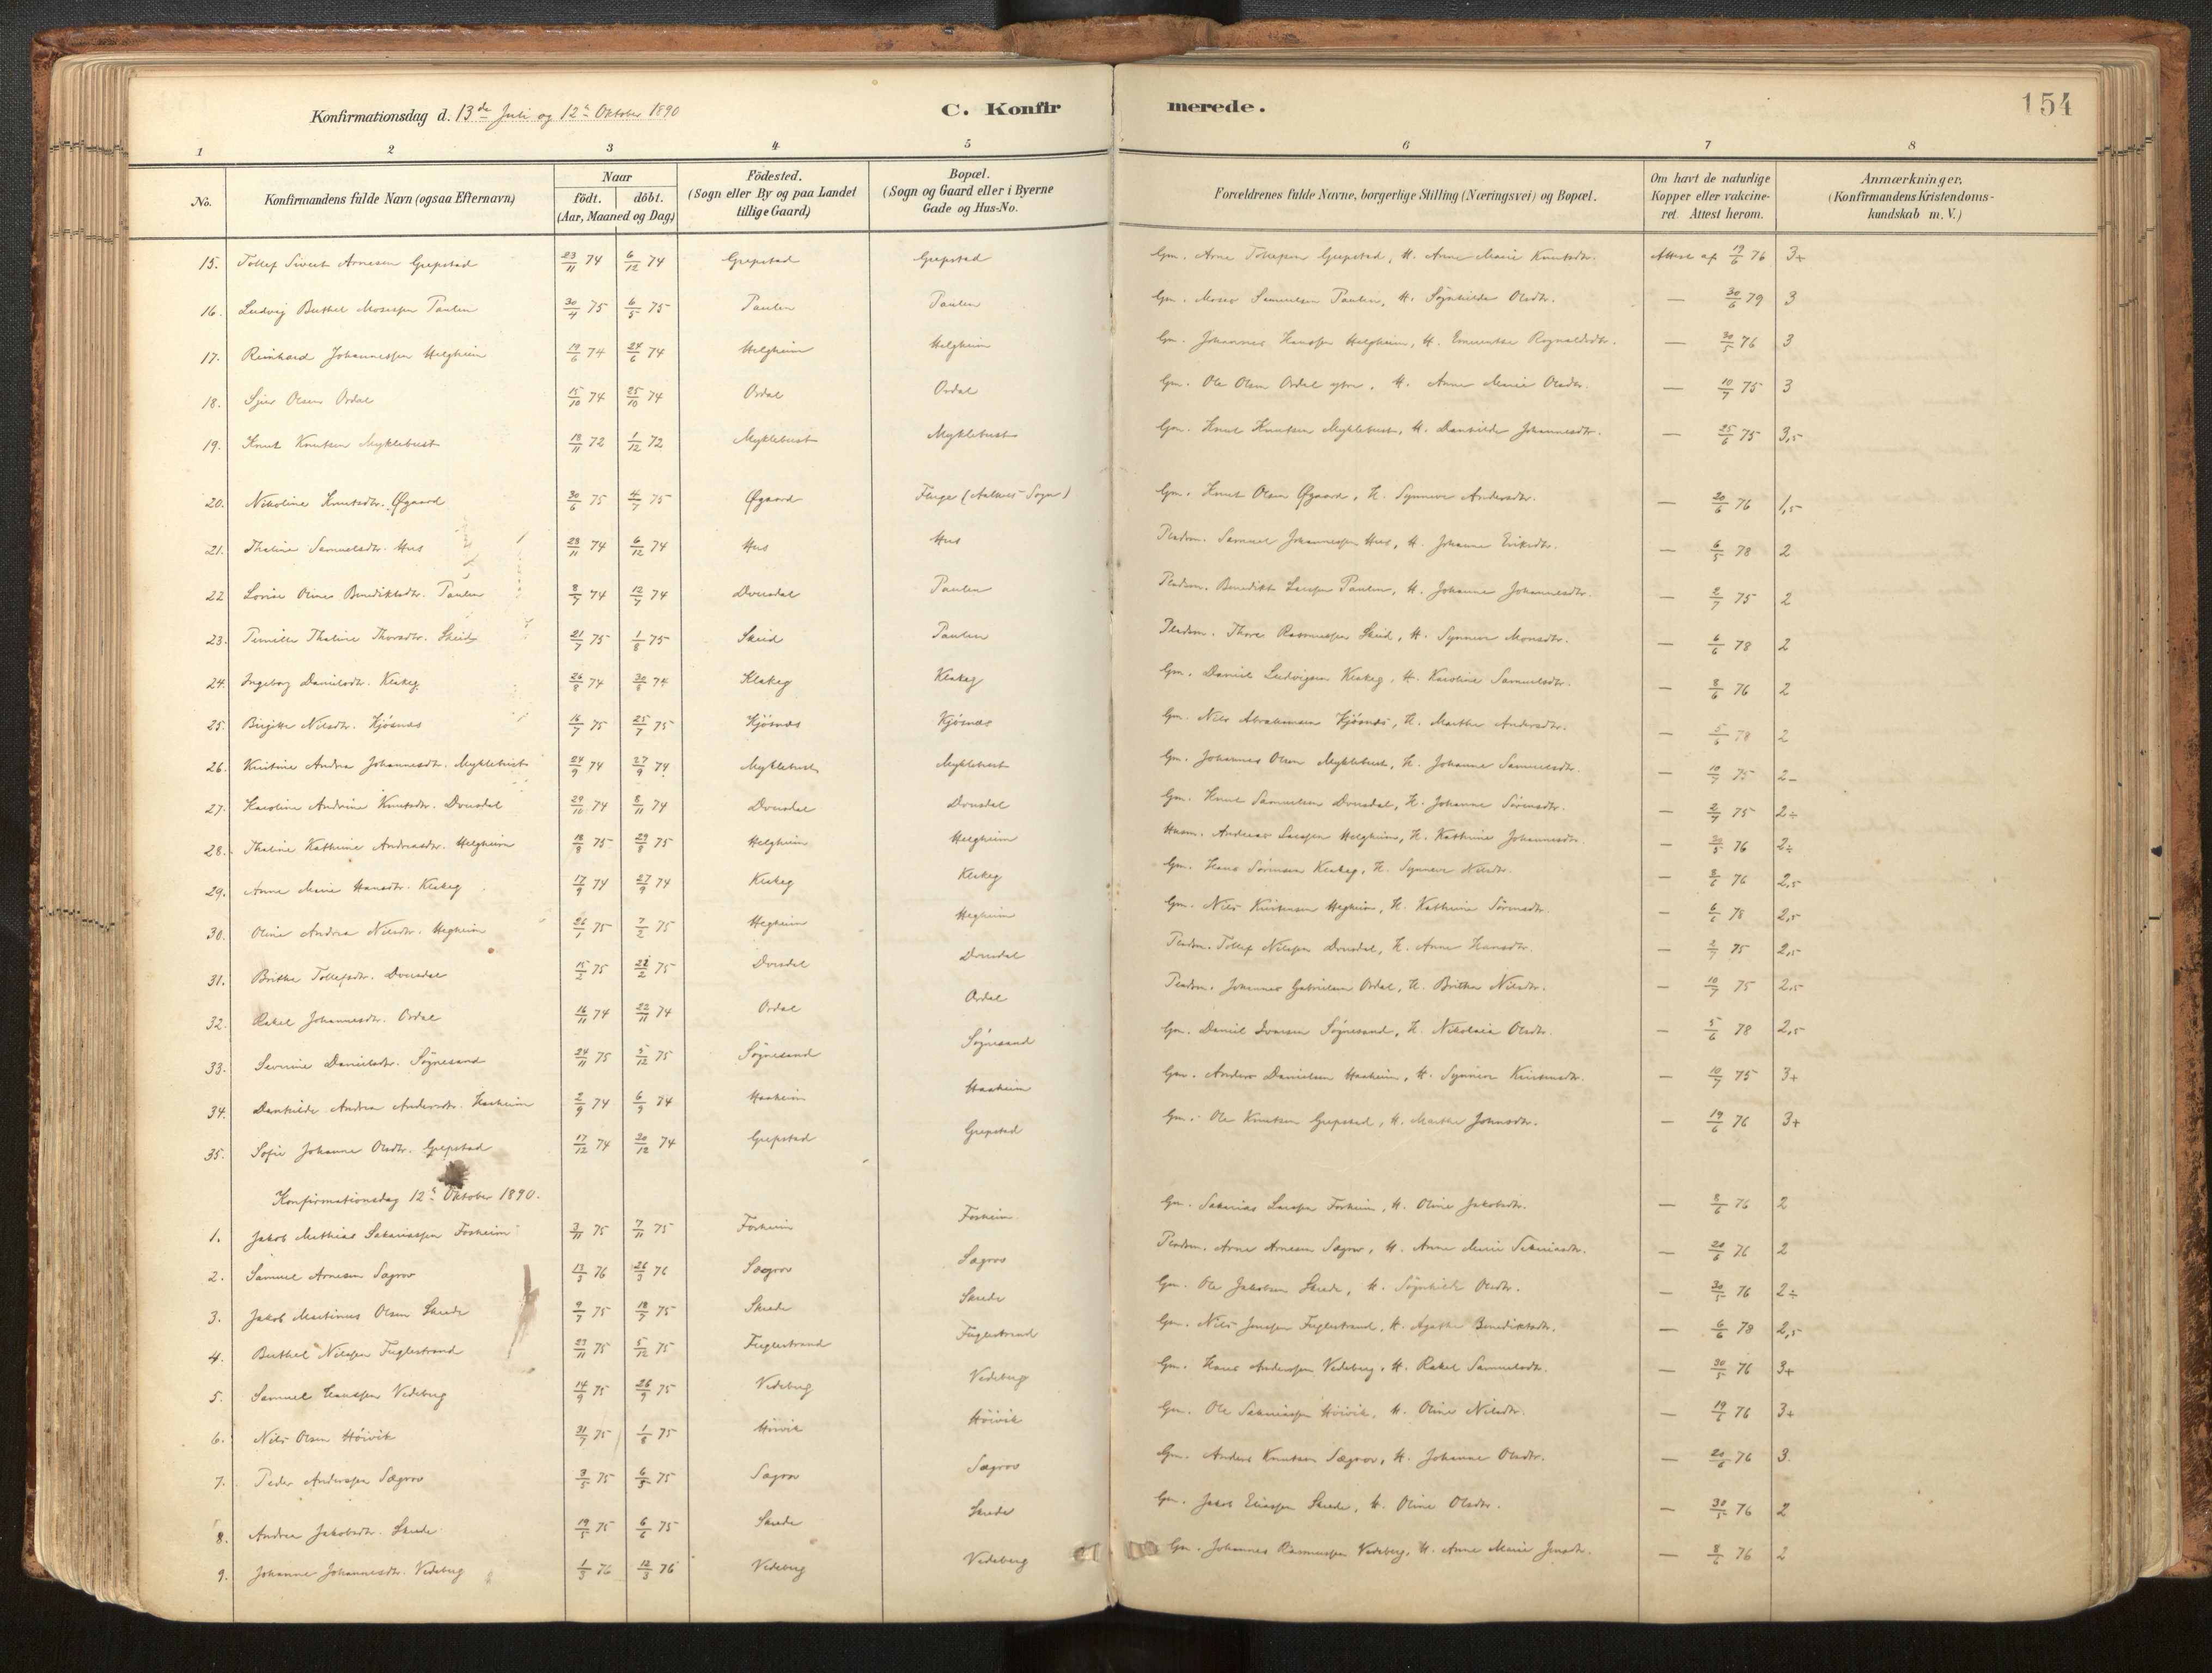 154
Konfirmationsdag d. 13de Juli og 12te Oktober 1890
C. Konfirmerede.
1 2 3 4 5 6 7 8
No. Konfirmandens fulde Navn (ogsaa Efternavn) Naar födt. döbt. (Aar, Maaned og Dag) Födested. (Sogn eller By og paa Landet tillige Gaard) Bopæl. (Sogn og Gaard eller i Byerne Gade og Hus-No. Forældrenes fulde Navne, borgerlige Stilling (Næringsvei) og Bopæl. Om havt de naturlige Kopper eller vakcineret. Attest herom. Anmærkninger, (Konfirmandens Kristendomskundskab m. V.)
15. Tollef Sivert Arnesen Grepstad 23/11 74 6/12 74 Grepstad Grepstad Gm. Arne Tollefsen Grepstad, H. Anne Marie Knutsdtr. Attest af 19/6 76 3+
16. Ludvig Berthel Mosessen Paulen 30/4 75 6/5 75 Paulen Paulen Gm. Moses Samuelsen Paulen, H. Søgnhilde Olsdtr. — 30/6 79 3
17. Reinhard Johannessen Helgheim 19/6 74 24/6 74 Helgheim Helgheim Gm. Johannes Hanssen Helgheim, H. Emerentse Rognaldsdtr. — 30/5 76 3
18. Sjur Olsen Ordal 15/10 74 25/10 74 Ordal Ordal Gm. Ole Olsen Ordal ytre, H. Anne Marie Olsdtr. — 10/7 75 3
19. Knut Knutsen Myklebust 18/11 72 1/12 72 Myklebust Myklebust Gm. Knut Knutsen Myklebust, H. Danhilde Johannesdtr. — 25/6 75 3,5
20. Nikoline Knutsdtr. Øgaard 30/6 75 4/7 75 Øgaard Fluge (Aalhus Sogn) Gm. Knut Olsen Øgaard, H. Synneve Andersdtr. — 20/6 76 1,5
21. Thaline Samuelsdtr. Hus 28/11 74 6/12 74 Hus Hus Pladsm. Samuel Johannessen Hus, H. Johanne Eriksdtr. — 6/5 78 2
22 Lovise Oline Benediktsdtr. Paulen 8/7 74 12/7 74 Dvergsdal Paulen Pladsm. Benedikt Larssen Paulen, H. Johanne Johannesdtr. — 2/7 75 2
23. Pernille Thaline Thorsdtr. Skeid 21/7 75 1/8 75 Skeid Paulen Pladsm. Thore Rasmussen Skeid, H. Synneve Monsdtr. — 6/6 78 2
24. Ingeborg Danielsdtr. Klakeg 26/8 74 30/8 74 Klakeg Klakeg Gm. Daniel Ludvigsen Klakeg, H. Karoline Samuelsdtr. — 8/6 76 2
25. Birgitte Nilsdtr. Kjösnæs 16/7 75 25/7 75 Kjösnæs Kjösnæs Gm. Nils Abrahamsen Kjösnæs, H. Marthe Andersdtr. — 5/6 78 2
26. Kristine Andrea Johannesdtr. Myklebust 24/9 74 27/9 74 Myklebust Myklebust Gm. Johannes Olsen Myklebust, H. Johanne Samuelsdtr. — 10/7 75 2-
27. Karoline Andrine Knutsdtr. Dvergsdal 29/10 74 8/11 74 Dvergsdal Dvergsdal Gm. Knut Samuelsen Dvergsdal, H. Johanne Sörensdtr. — 2/7 75 2÷
28. Thaline Kathrine Andreasdtr. Helgheim 18/8 75 29/8 75 Helgheim Helgheim Husm. Andreas Larssen Helgheim, H. Kathrine Johannesdtr. — 30/5 76 2÷
29. Anne Marie Hansdtr. Klakeg 17/9 74 27/9 74 Klakeg Klakeg Gm. Hans Sörensen Klakeg, H. Synneve Nilsdtr. — 8/6 76 2,5
30. Oline Andrea Nilsdtr. Hegheim 26/1 75 7/2 75 Hegheim Hegheim Gm. Nils Kristensen Hegheim, H. Kathrine Sörensdtr. — 6/6 78 2,5
31. Brithe Tollefsdtr. Dvergsdal 15/2 75 21/2 75 Dvergsdal Dvergsdal Pladsm. Tollef Nilssen Dvergsdal, H. Anne Hansdtr. — 2/7 75 2,5
32. Rakel Johannesdtr. Ordal 16/11 74 22/11 74 Ordal Ordal Pladsm. Johannes Gabrielsen Ordal, H. Brithe Nilsdtr. — 10/7 75 2,5
33. Severine Danielsdtr. Sögnesand 24/11 75 5/12 75 Sögnesand Sögnesand Gm. Daniel Ivarsen Sögnesand, H. Nikolaia Olsdtr. — 5/6 78 2,5
34. Danhilde Andrea Andersdtr. Haaheim 2/9 74 6/9 74 Haaheim Haaheim Gm. Anders Danielsen Haaheim, H. Synneve Kristensdtr. — 10/7 75 3+
35. Sofie Johanne Olsdtr. Grepstad 17/12 74 20/12 74 Grepstad Grepstad Gm. Ole Knutsen Grepstad, H. Marthe Johnsdtr. — 19/6 76 3+
Konfirmationsdag 12te Oktober 1890.
1. Jakob Mathias Sakariassen Forheim 3/11 75 7/11 75 Forheim Forheim Gm. Sakarias Larssen Forheim, H. Oline Jakobsdtr. — 8/6 76 2
2. Samuel Arnesen Sægrov 13/3 76 26/3 76 Sægrov Sægrov Pladsm. Arne Arnesen Sægrov, H. Anne Marie Sakariasdtr. — 20/6 76 2
3. Jakob Martinus Olsen Skrede 9/7 75 18/7 75 Skrede Skrede Gm. Ole Jakobsen Skrede, H. Søgnhild Olsdtr. — 30/5 76 2÷
4. Berthel Nilssen Fuglestrand 23/11 75 5/12 75 Fuglestrand Fuglestrand Gm. Nils Jonssen Fuglestrand, H. Agathe Benediktsdtr. — 6/6 78 2,5
5. Samuel Hanssen Vedeberg 14/9 75 26/9 75 Vedeberg Vedeberg Gm. Hans Anderssen Vedeberg, H. Rakel Samuelsdtr. — 30/5 76 3+
6. Nils Olsen Höivik 31/7 75 1/8 75 Höivik Höivik Gm. Ole Sakariassen Höivik, H. Oline Nilsdtr. — 19/6 76 3+
7. Peder Anderssen Sægrov 3/5 75 6/5 75 Sægrov Sægrov Gm. Anders Knutsen Sægrov, H. Johanne Olsdtr. — 20/6 76 3.
8. Andrea Jakobsdtr. Skrede 19/5 75 6/6 75 Skrede Skrede Gm. Jakob Eliassen Skrede, H. Oline Olsdtr. — 30/5 76 2
9. Johanne Johannesdtr. Vedeberg 1/3 76 12/3 76 Vedeberg Vedeberg Gm. Johannes Rasmussen Vedeberg, H. Anne Marie Jensdtr. — 8/6 76 2